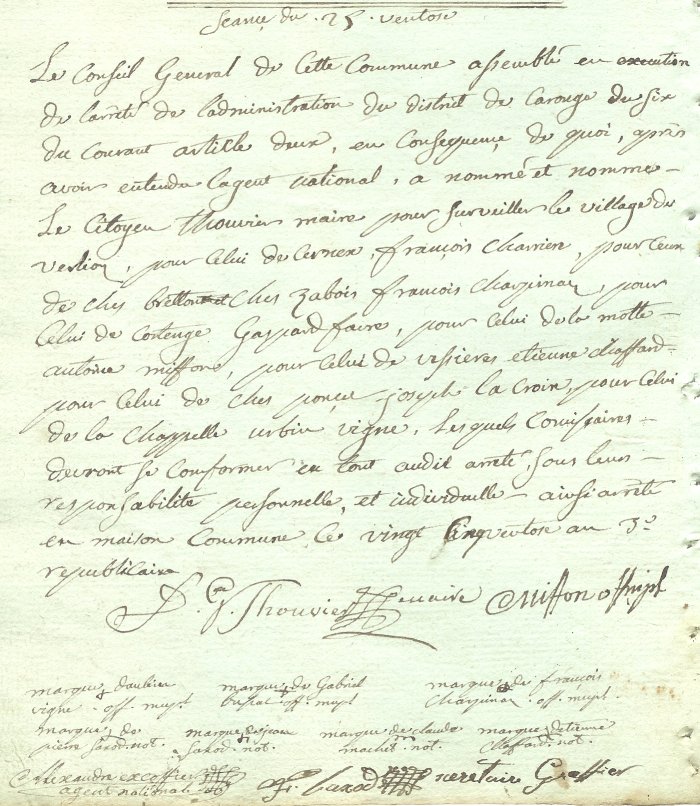 Seance du . 25 . ventose
Le Conseil General de Cette Commune assemblé en execution
de larrêté de ladministration du district de Carouge du six
du Courant article deux, en Consequence de quoi, après
avoir entendu lagent national, a nommé et nomme -
Le Citoyen Thouvier maire pour surveiller le village de
verlioz, pour Celui de Cernex, françois Charriere, pour Ceux
de ches et Ches zabois françois Charpinaz, pour
Celui de Cortenge Gaspard favre, pour Celui de la motte -
antoine miffon, pour Celui de vissieres etienne Chaffard -
pour Celui de Ches ponce joseph la Croix, pour Celui
de la Chappelle urbin vigne, Lesquels Comissaires -
devront se Conformer en tout audit arrêté, sous leurs -
responsabilité personnelle, et individuelle - ainsi arrêté
en maison Commune le vingt Cinq ventose an 3e
republicain
J. G. Thouvier maire Miffon off mpl
marque de françois
marque de Gabriel
vigne . off. mupt off. mupt Charpinaz . off. mupt.
marque de marque de jean marque de claude marque detienne
saxod . not. saxod . not. not. Chaffard . not.
Alexandre excoffier
agent national saxod secretaire Greffier